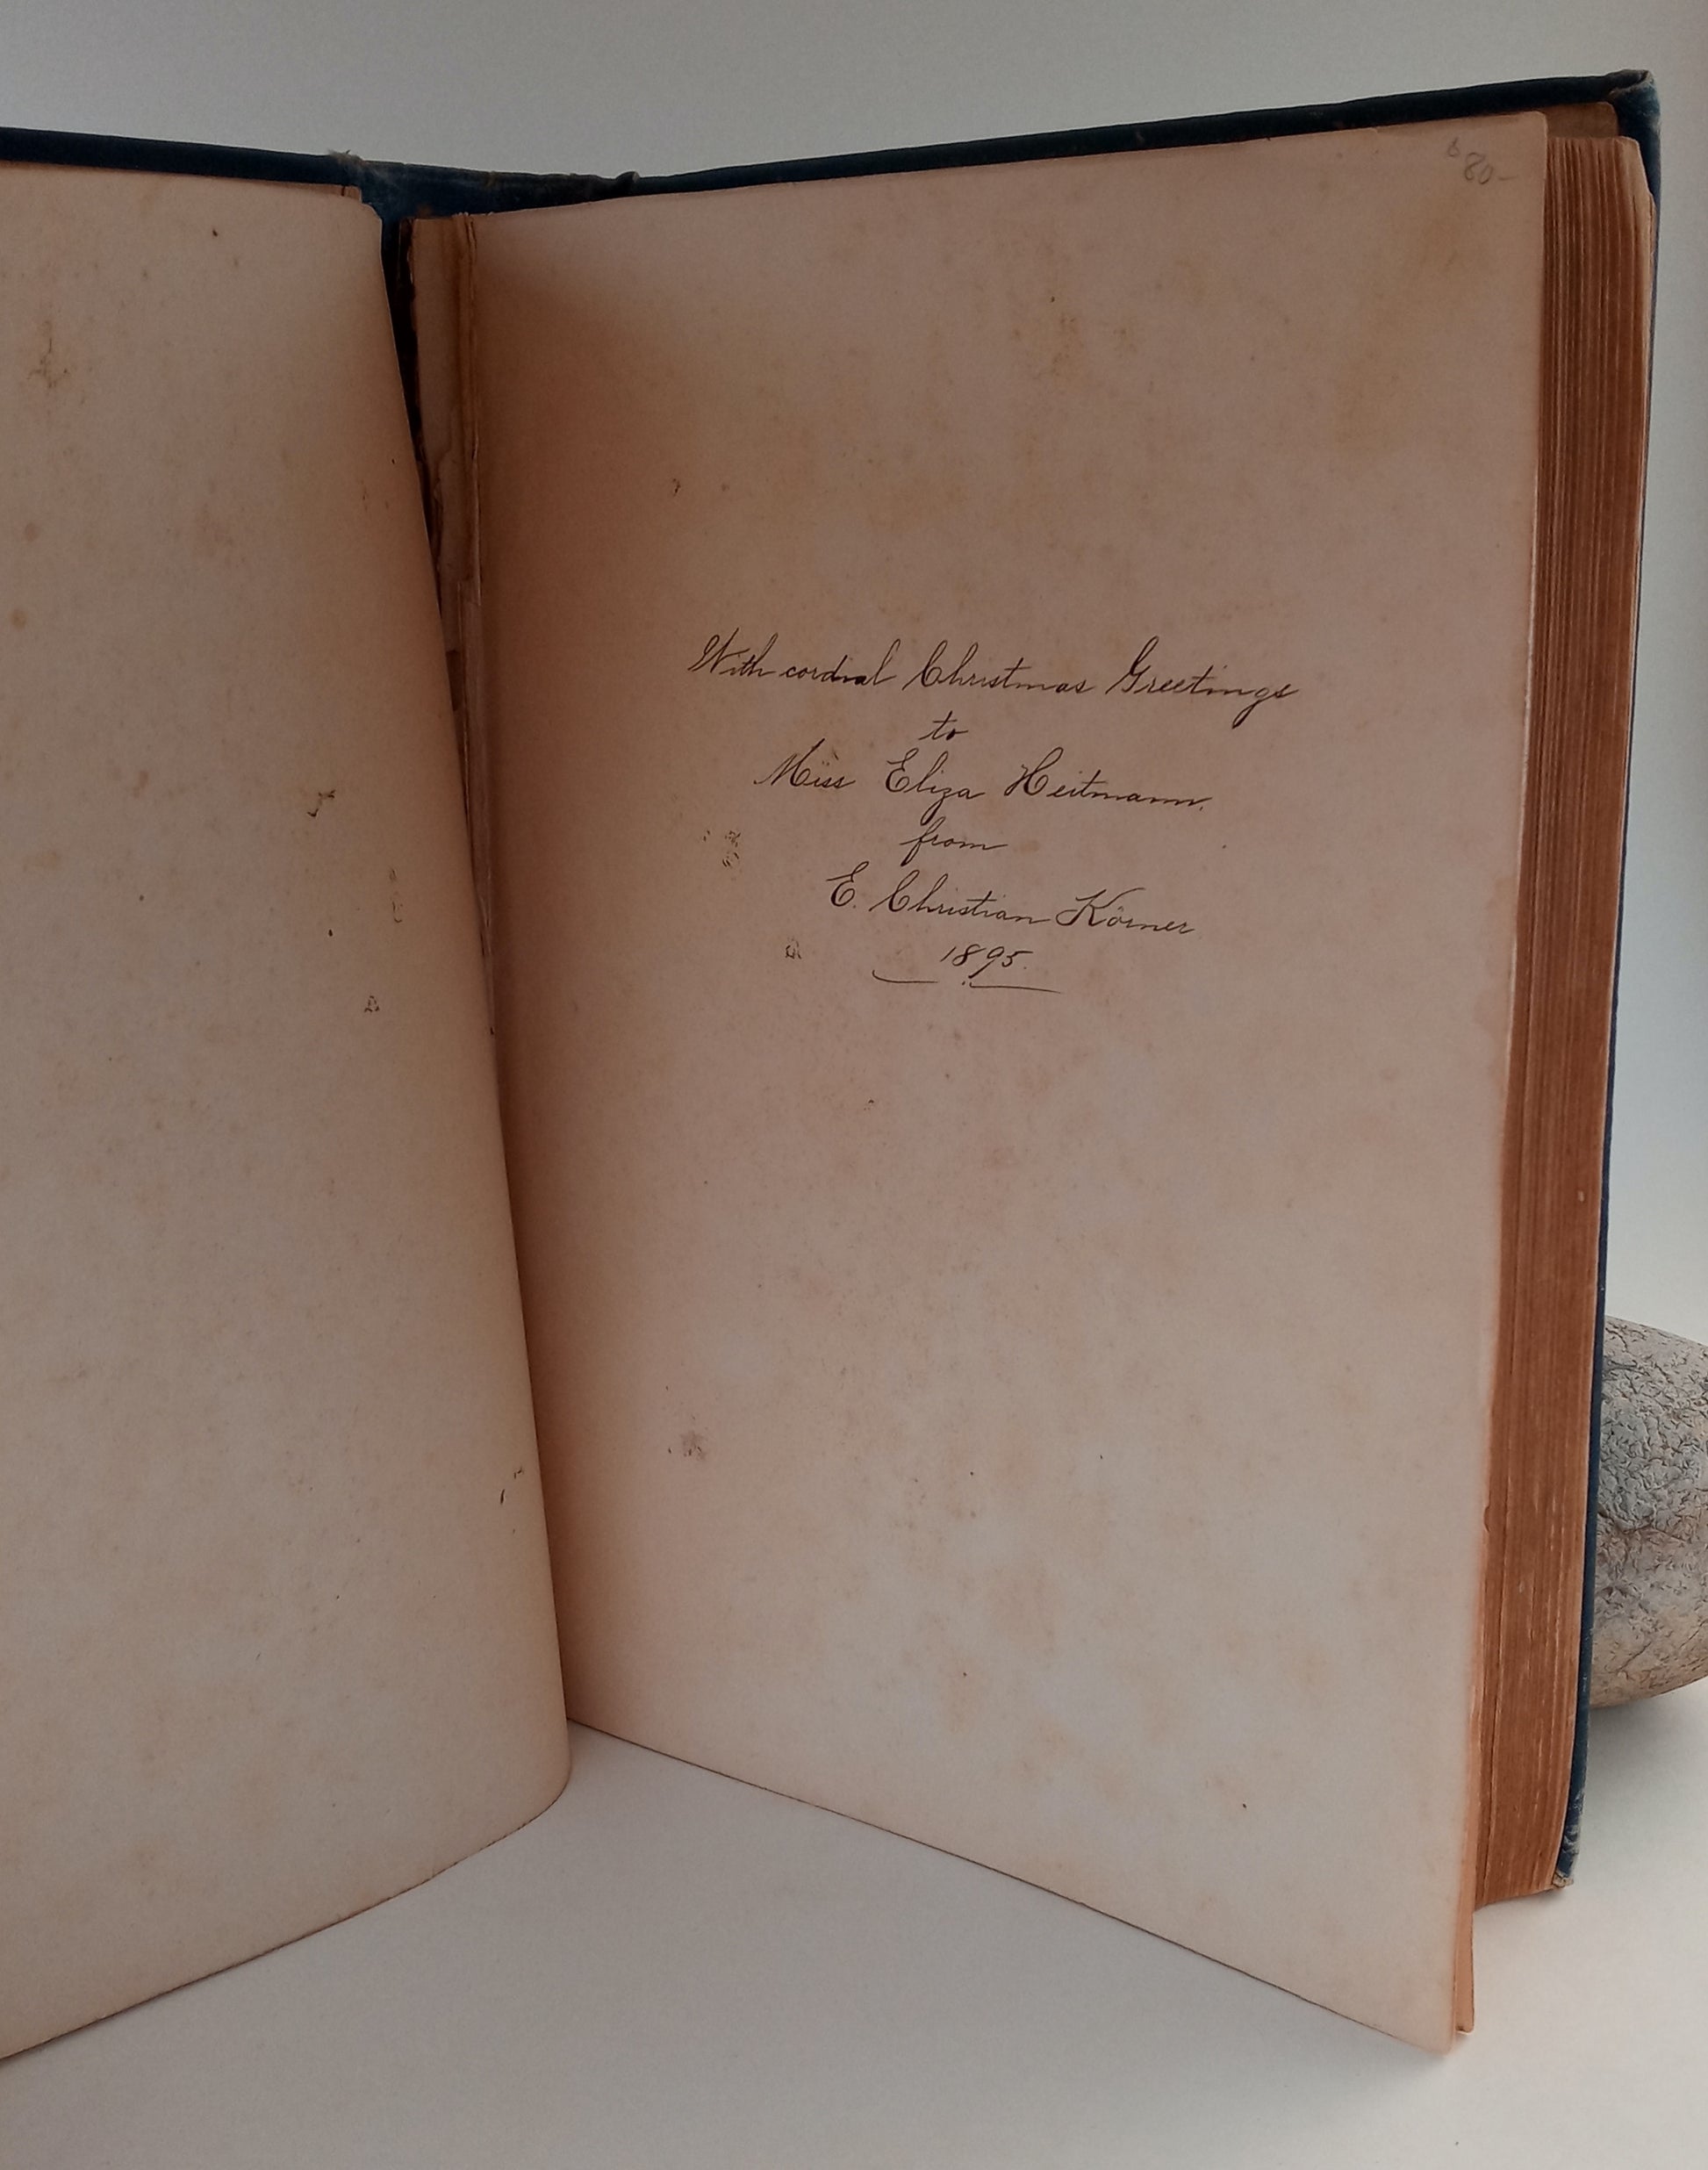 80-
With cordial Christmas Greetings
to
Miss Eliza Heitmann.
from
E. Christian Körner
1895.